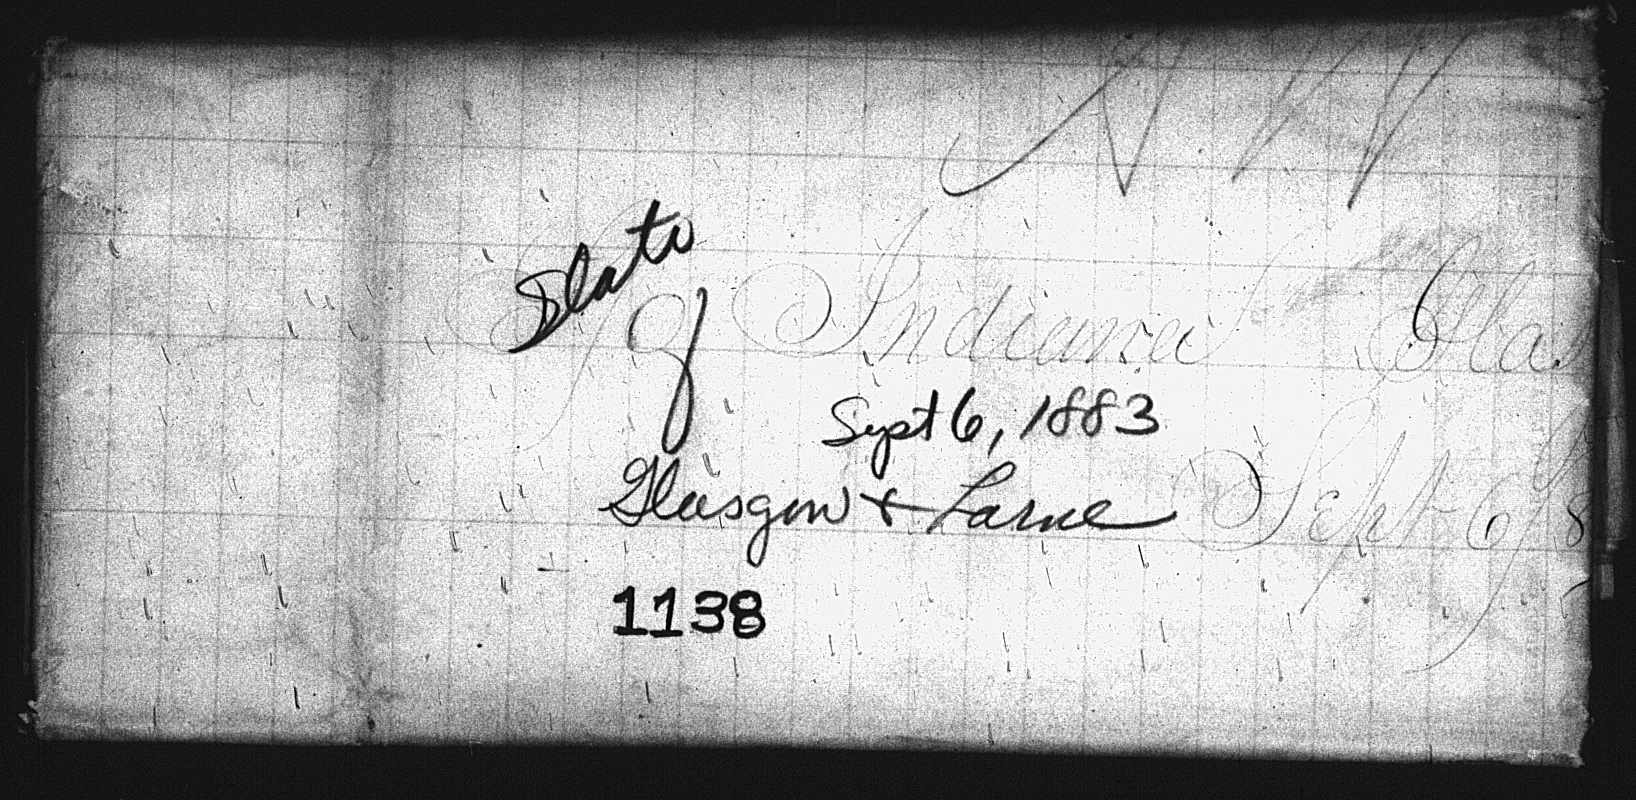 State
of Indiana Glas
Sept 6, 1883
Glasgow & Larne Sept 6 / 8
1138